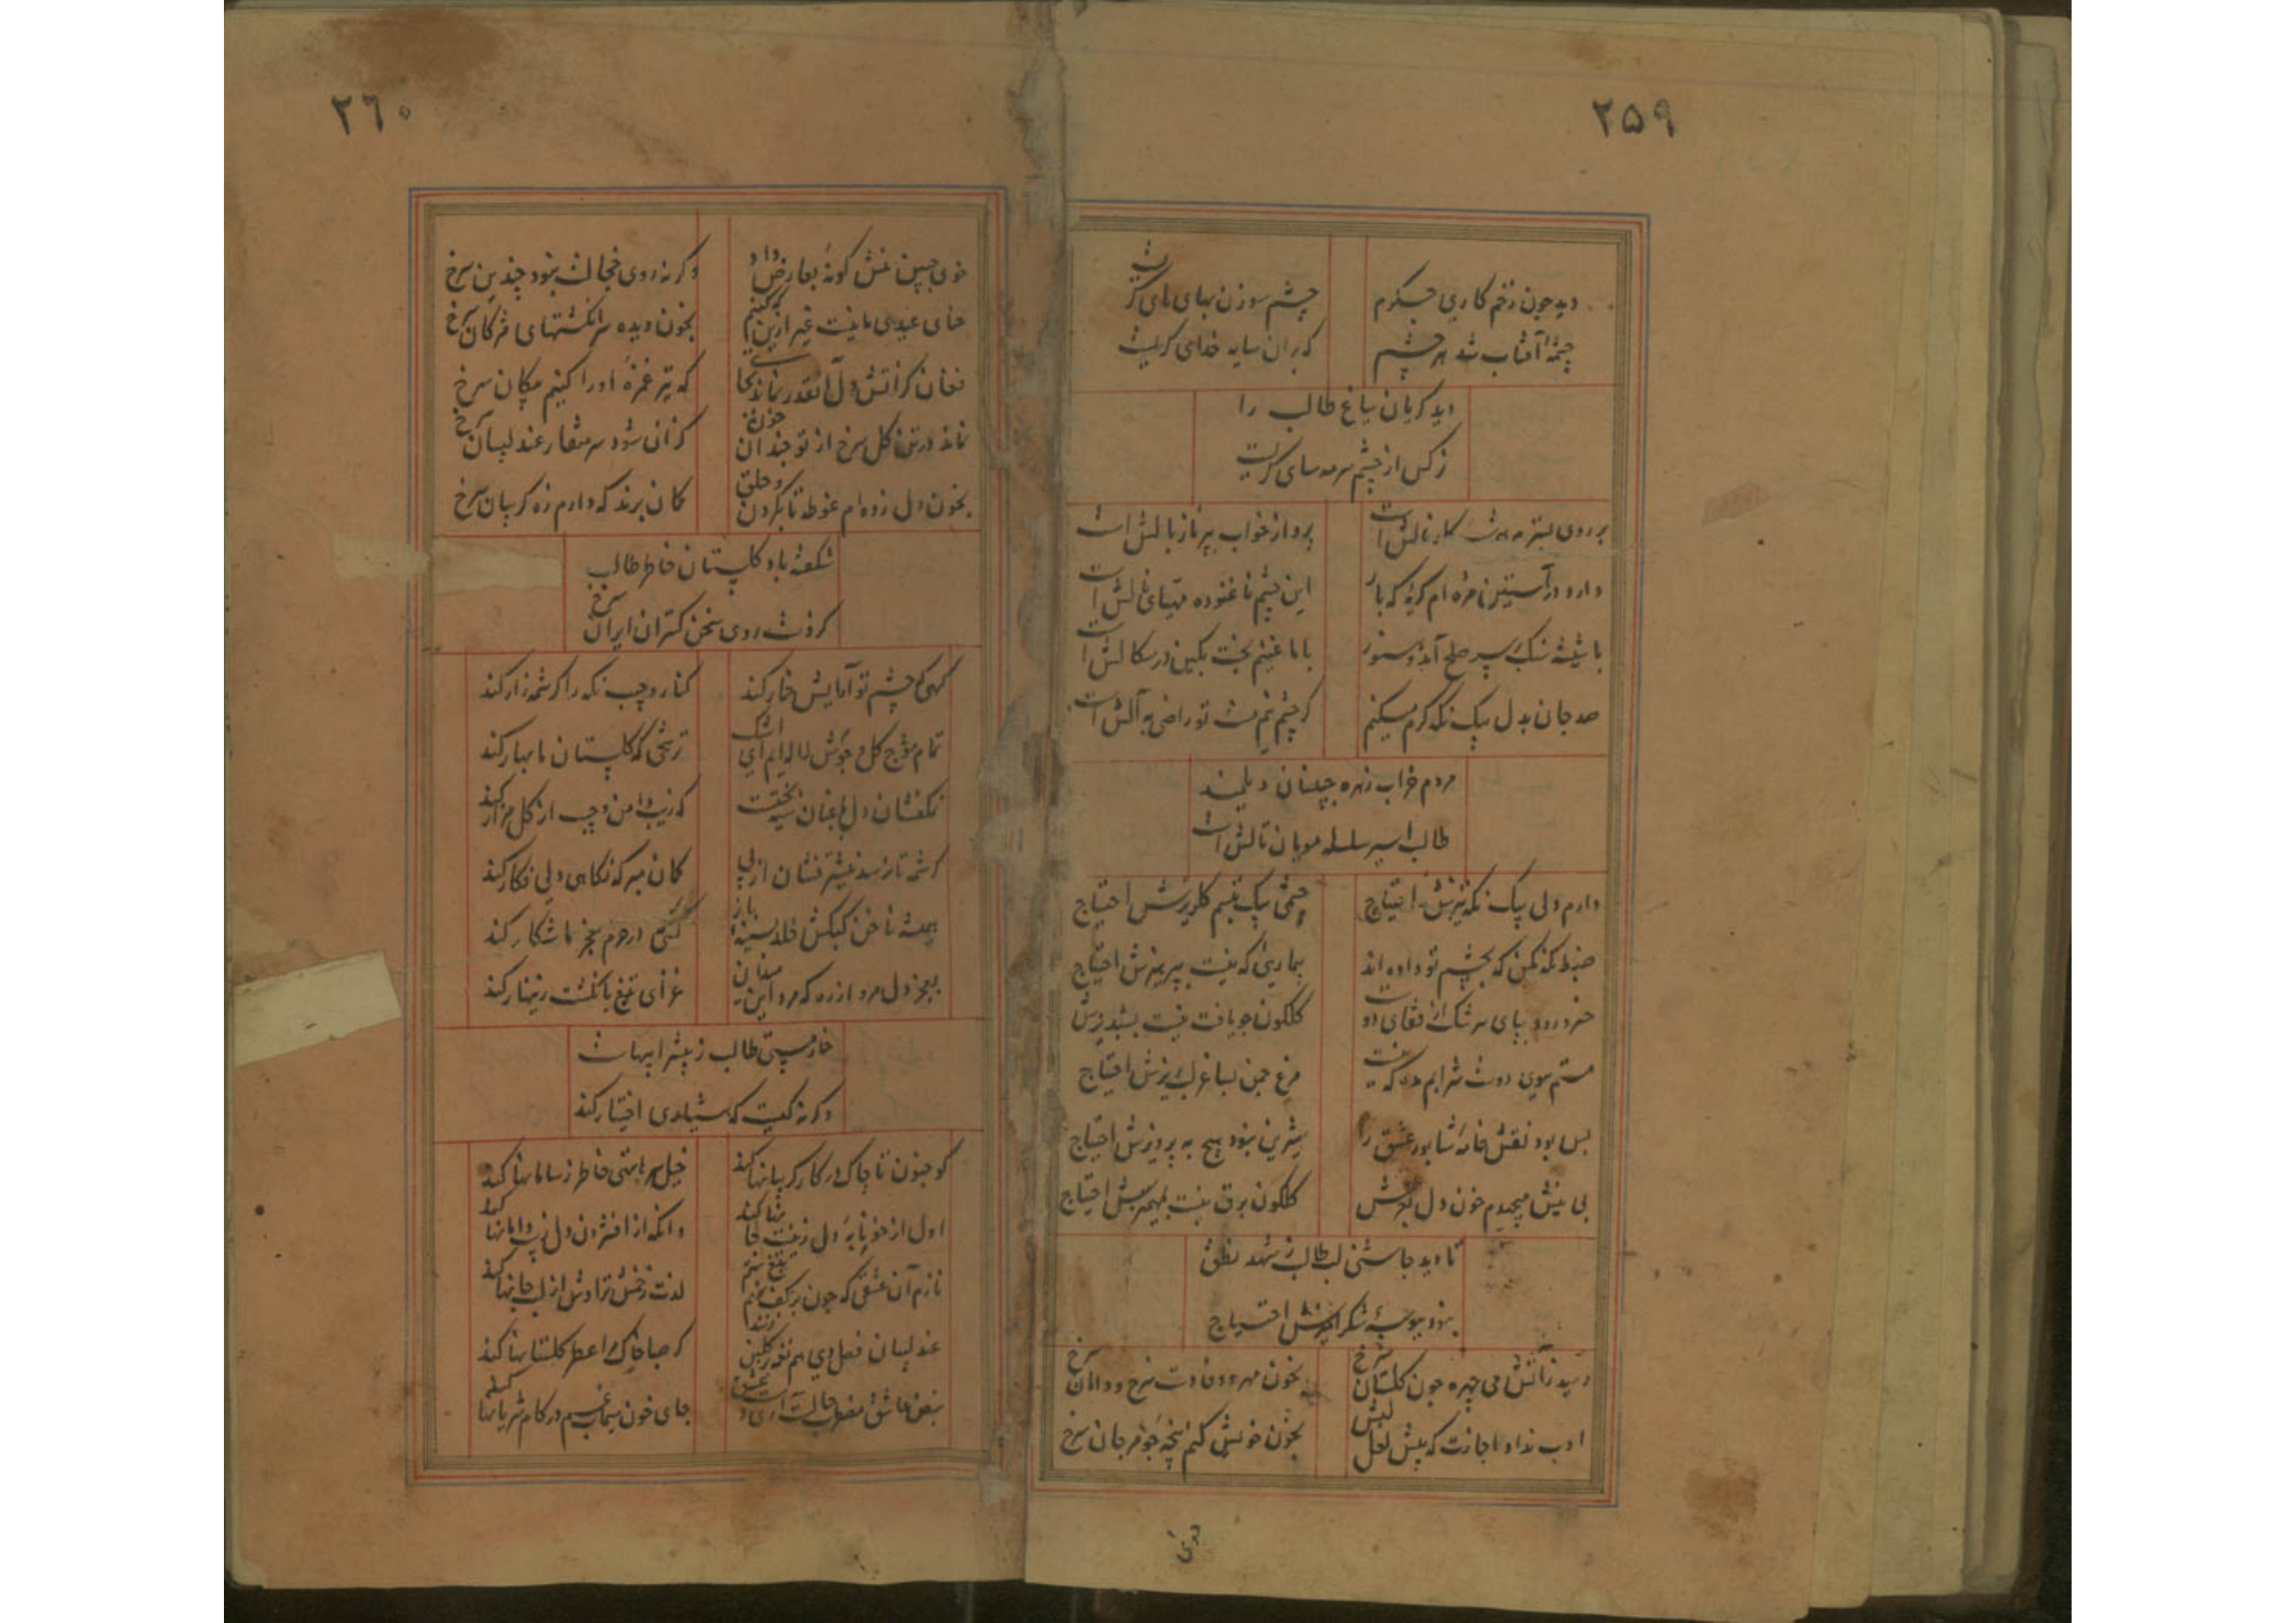 ۲۵۹
دید چون زخم کاری جگرم
چشم سوزن بهای های گریست
چشمهٔ آفتاب شد هر چشم
که بران سایه خدای گریست
دید گریان بباغ طالب را
نرگس از چشم سرمه سای گریست
بر روی بستر
پرواز خواب بپر ناز بالش است
دارد در آستین مژه ام گریهٔ که باز
این چشم ناغنوده مهیای نالش است
با شیشه سنگ بر سر صلح آمد و هنوز
با ما غنیم بخت بکین در سگالش است
صد جان بدل بیک نگه گرم میکنم
گر چشم نیم مست تو راضی به آلش است
مردم خراب زهره جبینان دیلمند
طالب اسیر سلسله مویان تالش است
دارم دلی بیک نگه تیزش احتیاج
چشمی بیک تبسم گلریزش احتیاج
ضبط نگه مکن که بچشم تو داده اند
بیماریی که نیست بپرهیزش احتیاج
خسرو رود بپای سرشک از قفای دوست
گلگون چو یافت نیست بشبدیزش
مستم سوی دوست شرابم مده که نیست
مرغ چمن بساغر لبریزش احتیاج
بس بود نقش خامهٔ شاپور عشق را
شیرین نبود هیچ به پرویزش احتیاج
بی نیش میجهدم خون دل
گلگون برق نیست بمهمیزش احتیاج
تا دید چاشنی لب طالب ز شهد نطق
نبود ببوسهٔ شکر آمیزش احتیاج
رسید ز آتش می چهره چون گلستان سرخ
بخون مهر و وفا دست سرخ و دامان سرخ
ادب نداد اجازت که پیش لعل لبش
بخون خویش کنم پنجه چو مرجان سرخ
خوی
۲۶۰
خوی جبین منش گونهٔ بعارض داد
وگرنه روی خجالت نبود چندین سرخ
حنای عیدی ما نیست غیر ازین که کنیم
بخون دیده سر انگشتهای مژگان سرخ
فغان کز آتش دل آنقدر نماند بجا
که تیر غمزهٔ او را کنیم پیکان سرخ
نماند در تن گل سرخ از تو چندان خون
کزان شود سر منقار عندلیبان سرخ
بخون دل زده ام غوطه تا بگردن و خلق
گمان برند که دارم زه گریبان سرخ
شکفته باد گلستان خاطر طالب
کزوست روی سخن گستران ایران سرخ
گهی که چشم تو آرایش خمار کند
کنار و جیب نگه را کرشمه زار کند
تمام موج گل و جوش لاله ایم ای اشک
ترشحی که گلستان ما بهار کند
نگه فشان دل باغبان نیخت
که زیب دامن و جیب از گل مزار کند
کرشمه تا نرسد نیشتر فشان از پی
گمان مبر که نگاهی دلی فگار کند
همیشه ناخن کبکش خلد بسینهٔ باز
کسی که در حرم عجز ما شکار کند
بعجز دل مرو از ره که مرد این میدان
غزای تیغ بانگشت زینهار کند
خمار مستی طالب ز بیشرابیهاست
وگرنه کیست که هشیاری اختیار کند
کو جنون تا چاک در کار گریبانها کند
خیل سر تا پی خاطر ز سامانها کند
اول از خونابهٔ دل زینت مژگان کند
وانگه از افشردن دل زیب دامانها کند
نازم آن عشقی که چون بر کف نهم تیغ ستم
لذت زخمش تراوش از لب جانها کند
عندلیبان فصل دی هم نغمه در گلبن زنند
گر صبا خاک مرا عطر گلستانها کند
نبض عاشق مضطرب حالست آری درد عشق
جای خون سیماب غم در کام شریانها کند